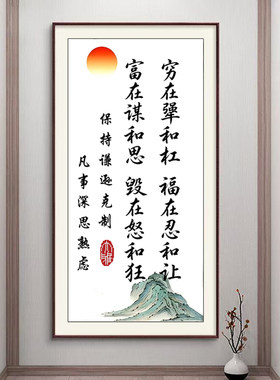 穷在犟和杠 福在忍和让
富在谋和思 毁在怒和狂
保持谦逊克制
凡事深思熟虑